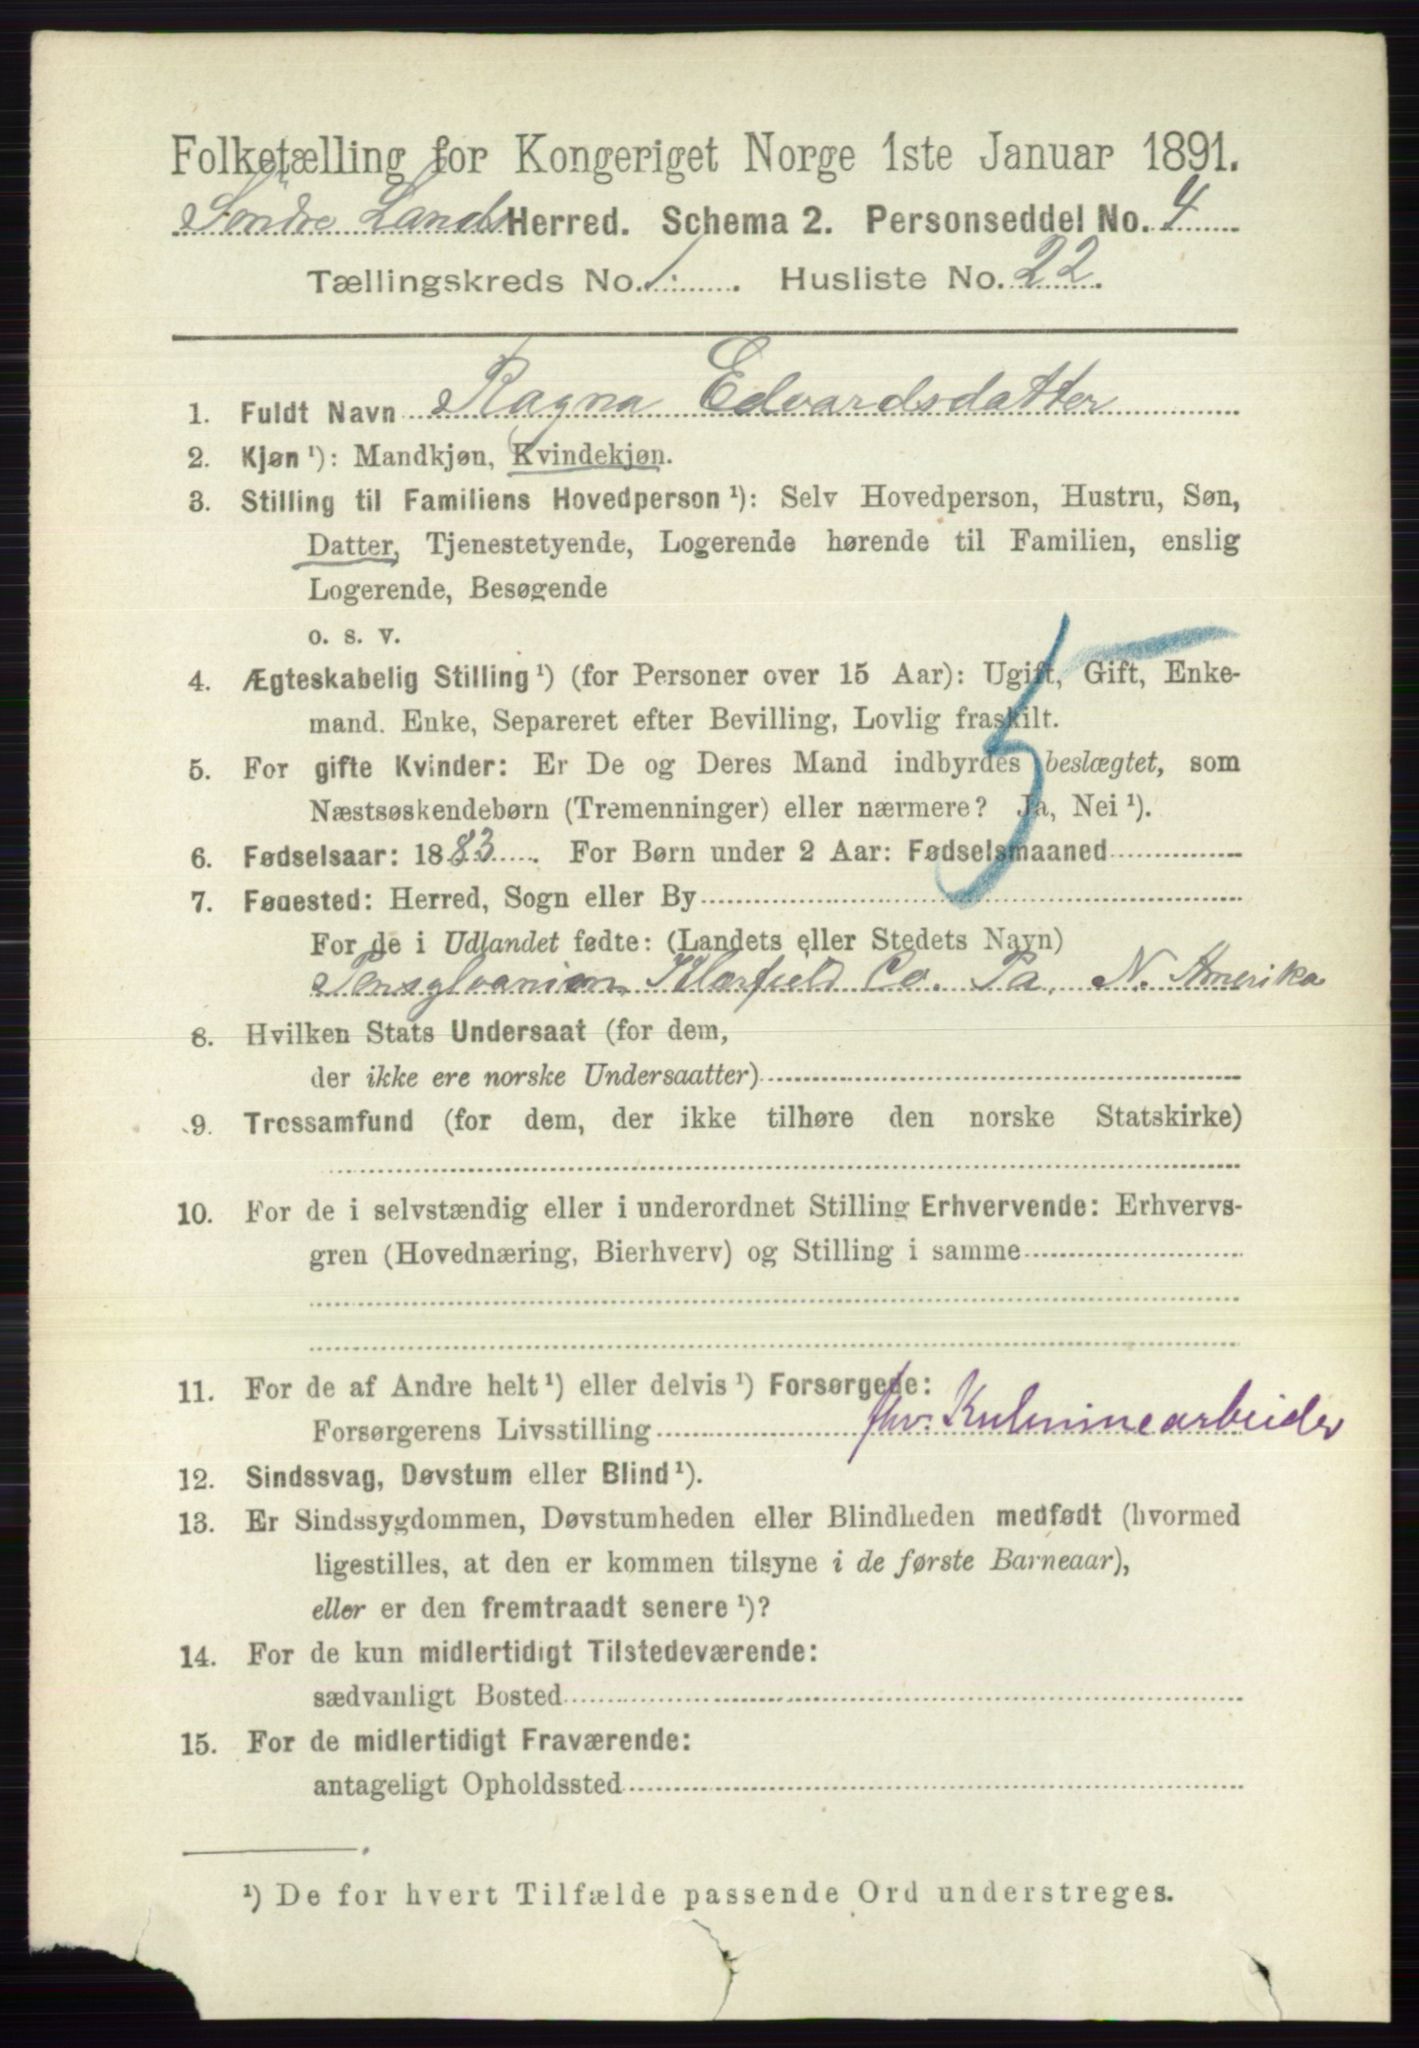 Folketælling for Kongeriget Norge 1ste Januar 1891.
Søndre Lands Herred. Schema 2. Personseddel No. 4
Tællingskreds No. 1. Husliste No. 22.
1. Fuldt Navn Ragna Edvardsdatter
2. Kjøn ¹): Mandkjøn, Kvindekjøn.
3. Stilling til Familiens Hovedperson ¹): Selv Hovedperson, Hustru, Søn,
Datter, Tjenestetyende, Logerende hørende til Familien, enslig
Logerende, Besøgende
o. s. v.
4. Ægteskabelig Stilling ¹) (for Personer over 15 Aar): Ugift, Gift, Enke-
mand. Enke, Separeret efter Bevilling, Lovlig fraskilt.
5
5. For gifte Kvinder: Er De og Deres Mand indbyrdes beslægtet, som
Næstsøskendebørn (Tremenninger) eller nærmere? Ja, Nei ¹).
6. Fødselsaar: 1883. For Børn under 2 Aar: Fødselsmaaned
7. Fødested: Herred, Sogn eller By
For de i Udlandet fødte: (Landets eller Stedets Navn)
Pensylvanien, Klarfield Co. Pa. N. Amerika
8. Hvilken Stats Undersaat (for dem,
der ikke ere norske Undersaatter)
9. Trossamfund (for dem, der ikke tilhøre den norske Statskirke)
10. For de i selvstændig eller i underordnet Stilling Erhvervende: Erhvervs-
gren (Hovednæring, Bierhverv) og Stilling i samme
11. For de af Andre helt ¹) eller delvis ¹) Forsørgede:
Forsørgerens Livsstilling fhv. Kulminearbeider
12. Sindssvag, Døvstum eller Blind ¹).
13. Er Sindssygdommen, Døvstumheden eller Blindheden medfødt (hvormed
ligestilles, at den er kommen tilsyne i de første Barneaar),
eller er den fremtraadt senere ¹)?
14. For de kun midlertidigt Tilstedeværende:
sædvanligt Bosted
15. For de midlertidigt Fraværende:
antageligt Opholdssted
¹) De for hvert Tilfælde passende Ord understreges.